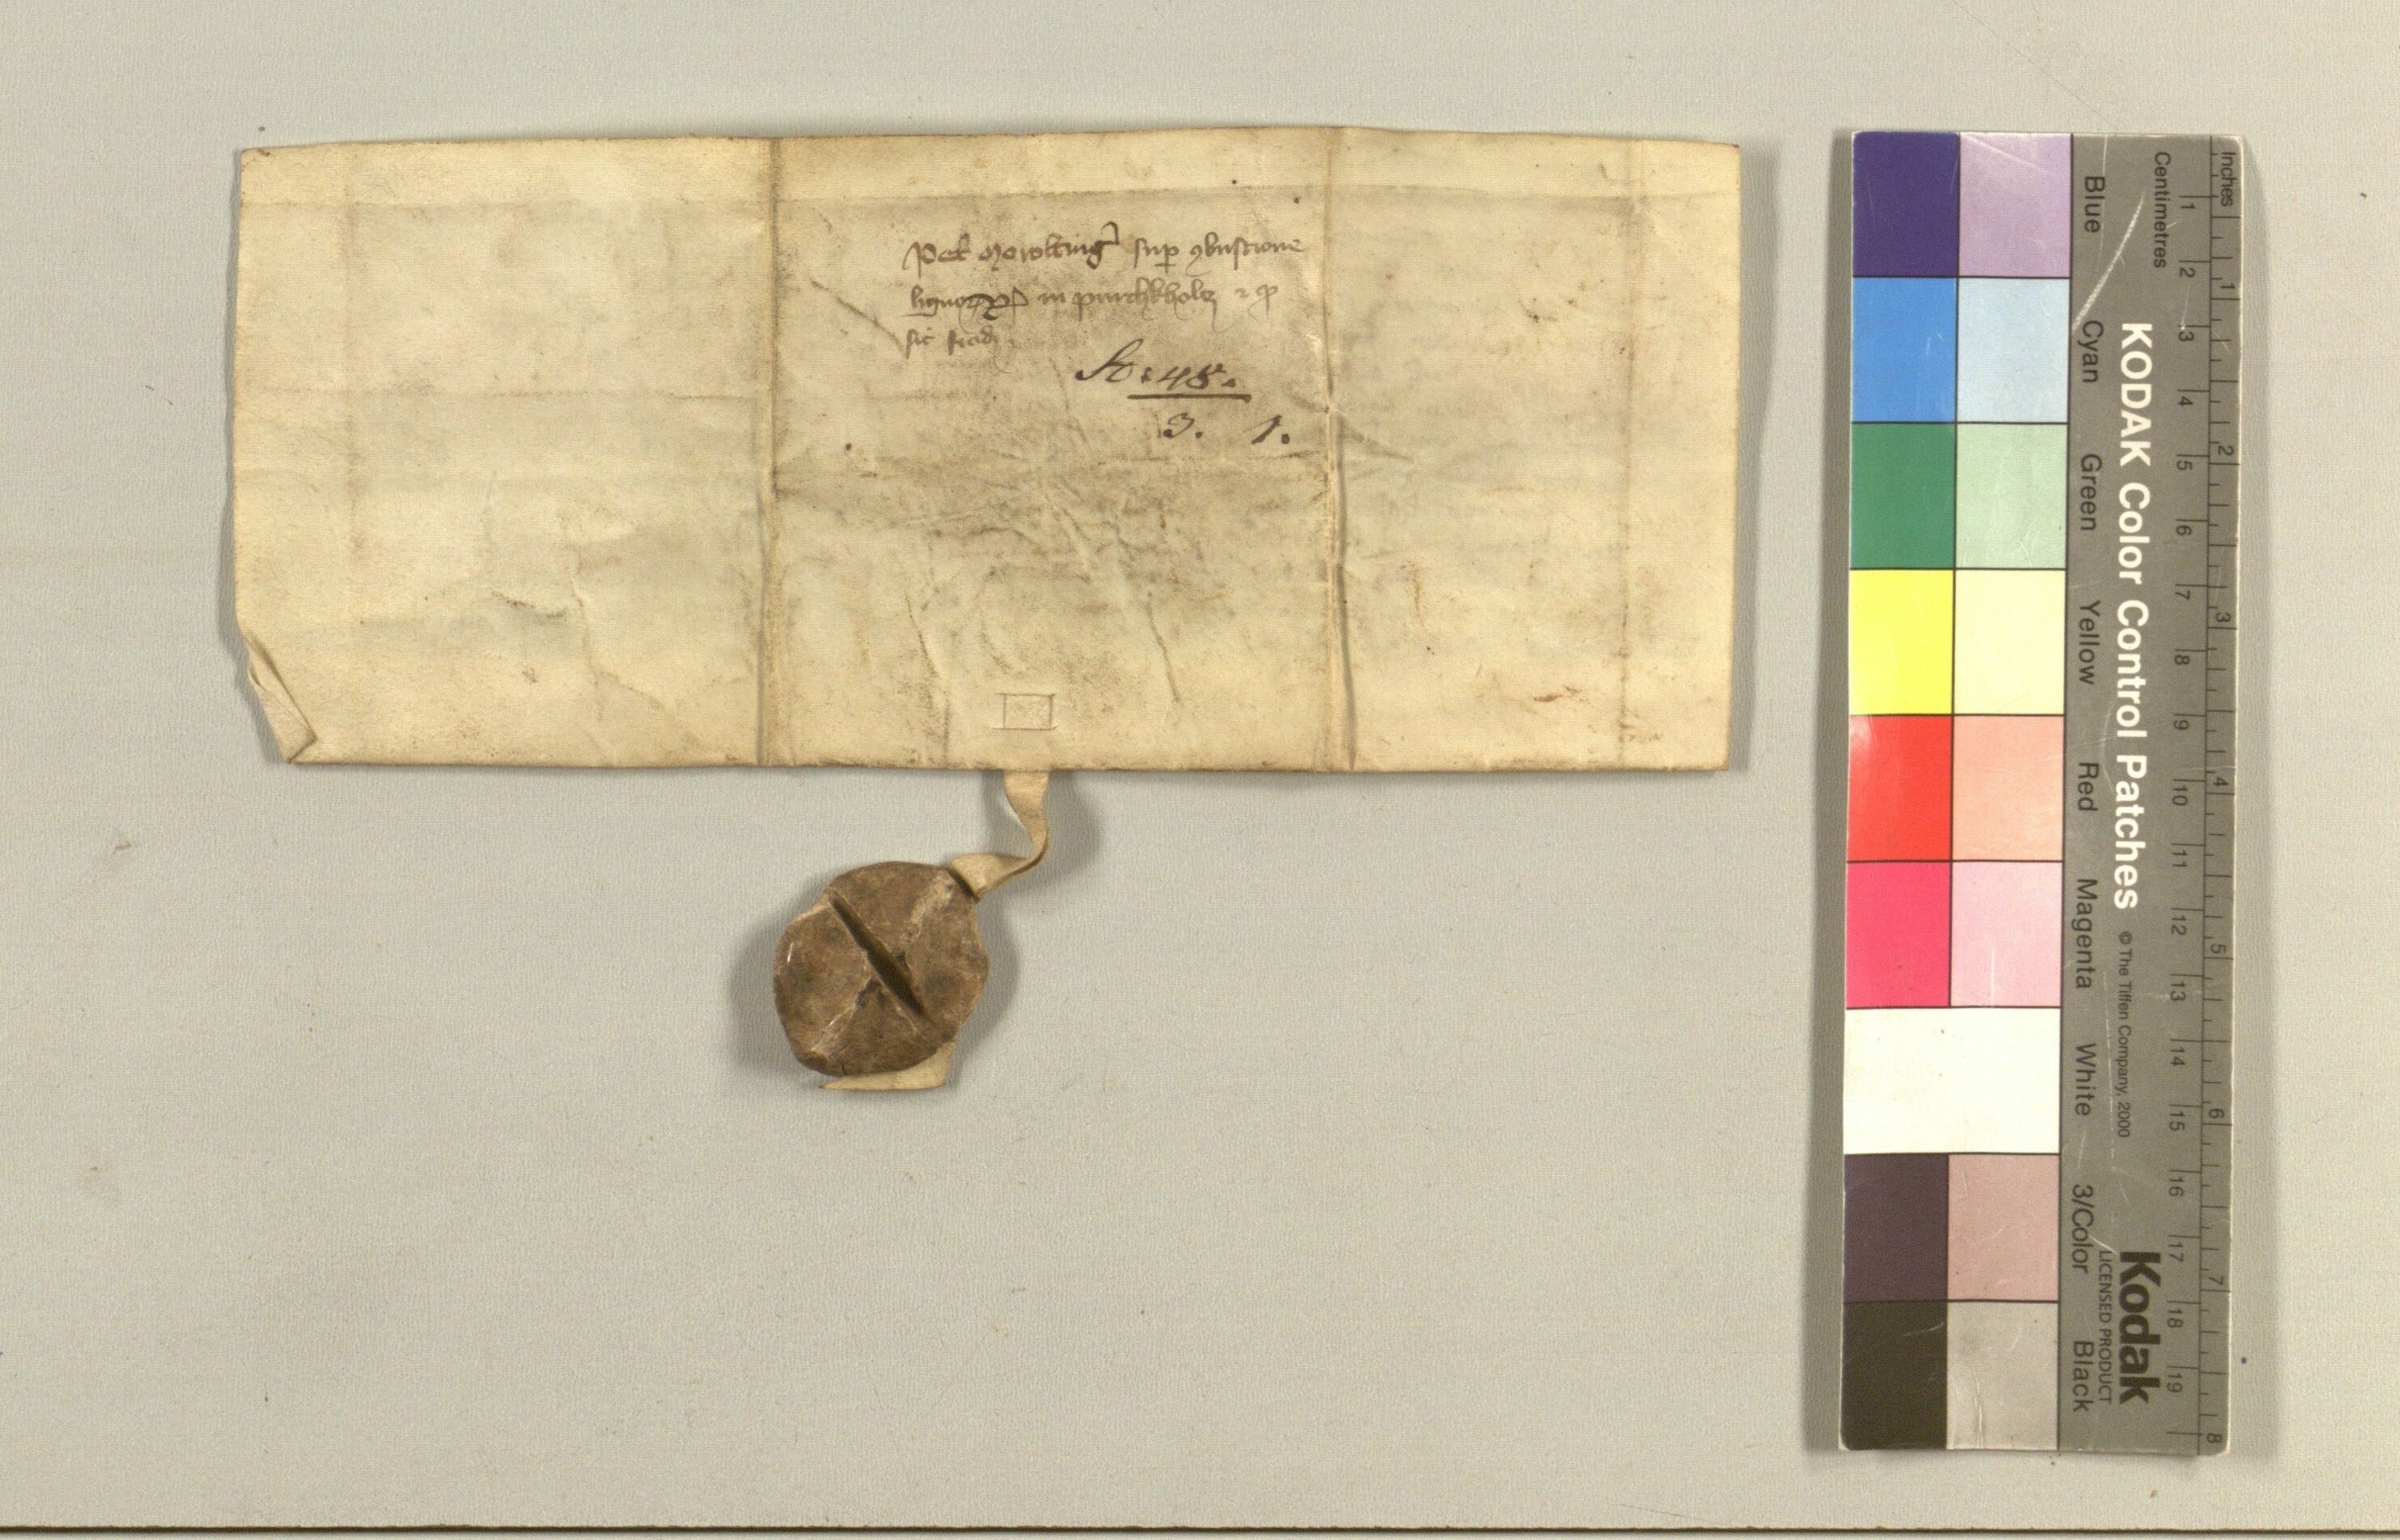 Pet sup ꝯbustione
lignoꝝ in purchkholcz
sic
48.
3. 1.
Inches
Centimetres
1 2 3 4 5 6 7 8 9 10 11 12 13 14 15 16 17 18 19
1 2 3 4 5 6 7 8
KODAK Color Control Patches © The Tiffen Company, 2000 Kodak
LICENSED PRODUCT
Blue Cyan Green Yellow Red Magenta White 3/Color Black